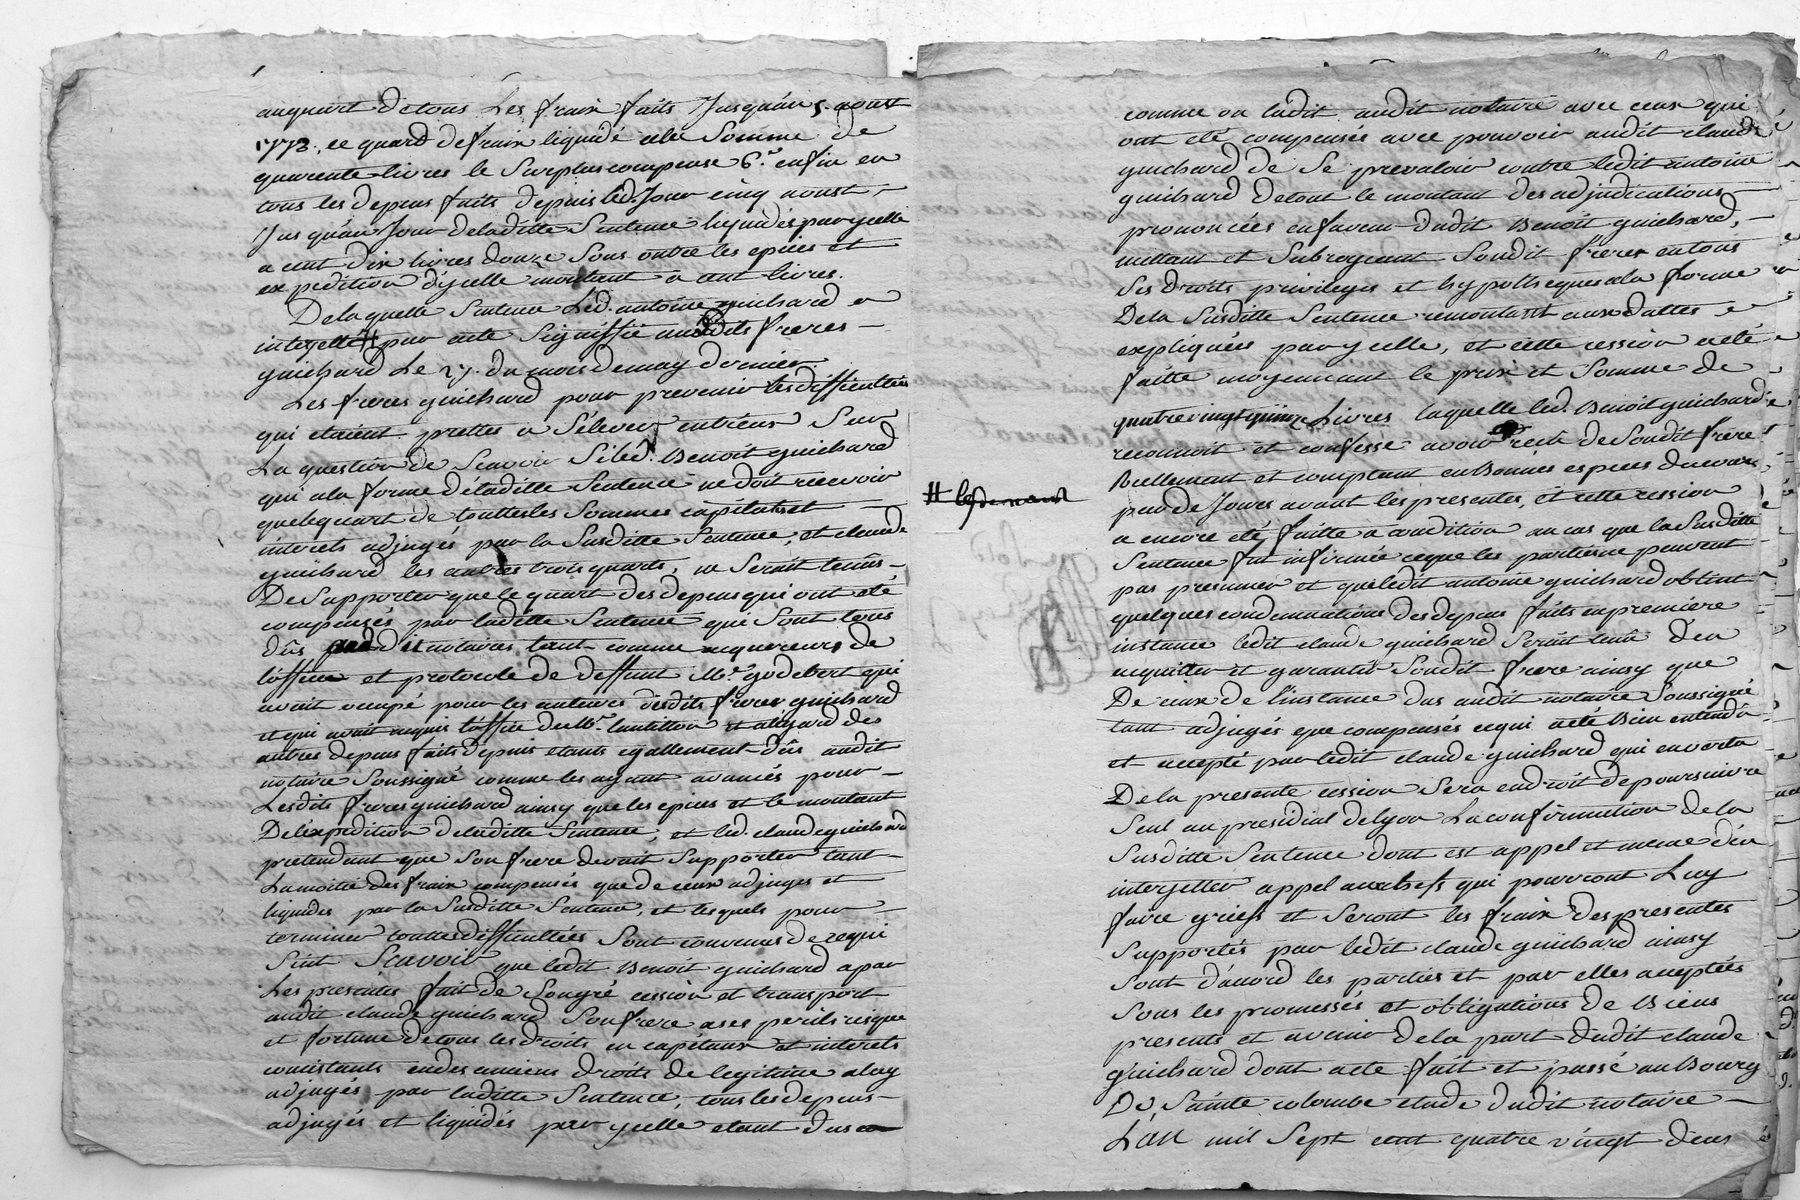 auquart de tous Les fraix faits Jusqu'au 5. aoust
1778, ce quard de fraix liquidé a la Somme de
quarente livres le Surplus compensé 6.° enfin en
tous les depens faits depuis led. Jour cinq aoust,
Jusqu'au Jour deladitte Sentence liquidés par ycelle
a cent dix livres douze Sous outre les epices et
expedition d'ycelle montant a cent livres.
De laquelle Sentence Led. antoine guichard a
interjetté # par acte Signiffié auxdits freres
guichard Le 27. du mois de may dernier.
Les freres guichard pour prevenir les difficultées
qui etaient prettes a S'élever entr'eux Sur
La question de Scavoir Si led. Benoit guichard
qui a la forme de laditte Sentence ne doit recevoir
que le quart de touttes les Sommes capitales et
interets adjugés par la Susditte Sentence, et claude
guichard les autres trois quarts, ne Serait tenu
De Supporter que le quart des depens qui ont été
compensés par laditte Sentence que Sont tous
dûs audit notaire tant comme acquereur de
l'office et protocole de deffunt M.e godebert qui
avait occupé pour les auteurs desdits freres guichard
et qui avait acquis l'office de M.e lantillon et a l'egard des
autres depens faits depuis etants egallement dûs audit
notaire Soussigné comme les ayant avancés pour
Lesdits freres guichard ainsy que les epices et le montant
De l'expedition de laditte Sentence, et led. claude guichard
pretendant que Son frere devait Supporter tant
La moitié des fraix compensés que de ceux adjugés et
liquidés par la Susditte Sentence, et lesquels pour
terminer touttes difficultées Sont convenus de ce qui
Suit Scavoir que ledit Benoit guichard a par
Les presentes fait de Son gré cession et transport
audit claude guichard Son frere a ses perils risque
et fortune de tous les droits en capitaux et interets
consistants en des anciens droits de legitime a luy
adjugés par laditte Sentence, tous les depens
adjugés et liquidés par ycelle etant dus
# lejdemand
comme on l'a dit audit notaire avec ceux qui
ont eté compensés avec pouvoir audit claude
guichard de Se prevaloir contre ledit antoine
guichard de tout le montant des adjudications
prononcées en faveur dudit Benoit guichard,
mettant et Subrogeant Sondit frere en tous
Ses droits privileges et hypotheques a la forme
De la Susditte Sentence remontant aux dattes
expliquées par ycelle, et cette cession a eté
faitte moyennant le prix et Somme de
quatre vingt quinze Livres laquelle led. Benoit guichard
reconnoit et confesse avoir recü de Sondit frere
Reellement et comptant en Bonnes especes du cours
peu de Jours avant les presentes, et cette cession
a encore eté faitte a condition au cas que la Susditte
Sentence fut infirmée ce que les parties ne peuvent
pas presumer et que ledit antoine guichard obtint
quelques condemnations des depens faits en premiere
instance ledit claude guichard Serait tenû d'en
acquiter et garantir Sondit frere ainsy que
De ceux de l'instance dus audit notaire Soussigné
tant adjugés que compensés ce qui a eté Bien entendû
et accepté par ledit claude guichard qui en vertu
De la presente cession Sera en droit de poursuivre
Seul au presidial de lyon La confirmation de la
Susditte Sentence dont est appel et meme d'en
interjetter appel aux chefs qui pourront Luy
faire griefs et Seront les fraix des presentes
Supportés par ledit claude guichard ainsy
Sont d'acord les parties et par elles acceptées
Sous les promesses et obligations de Biens
presents et avenir de la part dudit claude
guichard dont acte fait et passé au Bourg
De Sainte colombe etude dudit notaire
L'an mil Sept cent quatre vingt deux